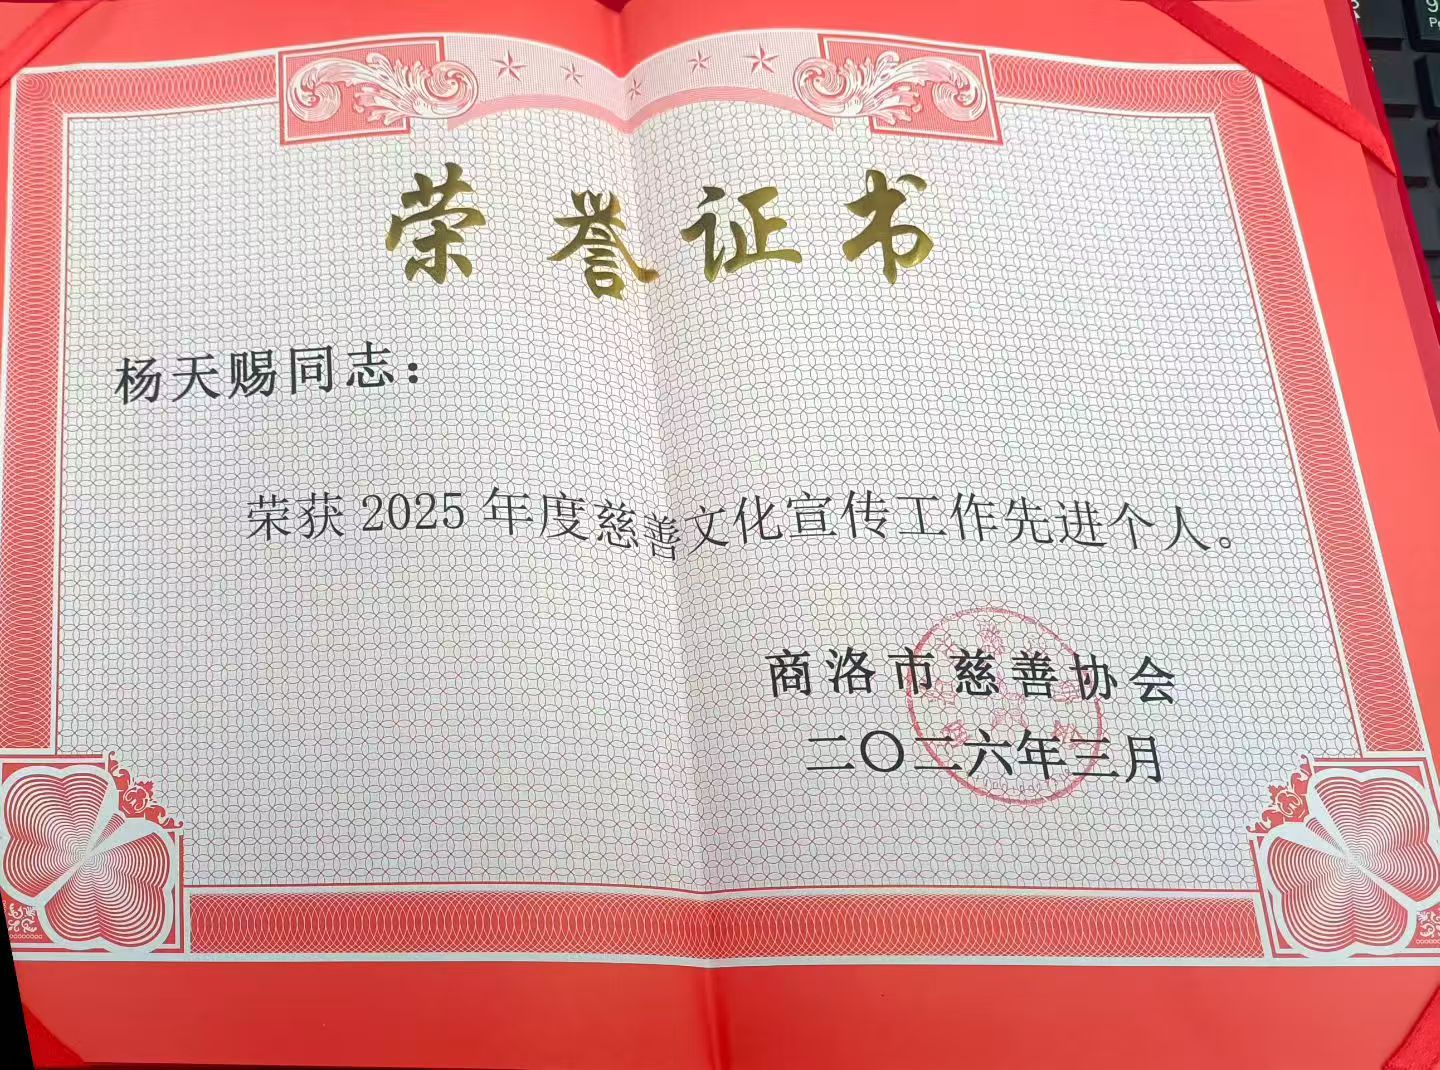 荣誉证书
杨天赐同志：
荣获2025年度慈善文化宣传工作先进个人。
商洛市慈善协会
二〇二六年三月